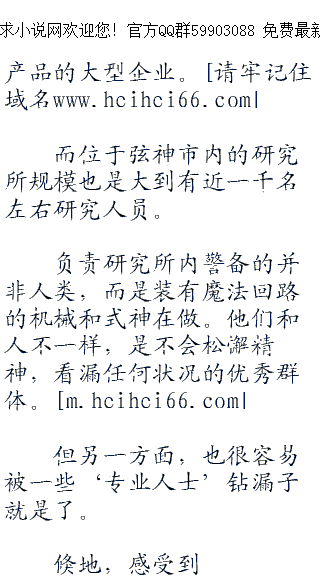 求小说网欢迎您！官方QQ群59903088 免费最新
产品的大型企业。[请牢记住
域名www.hcihci66.com|
而位于弦神市内的研究
所规模也是大到有近一千名
左右研究人员。
负责研究所内警备的并
非人类，而是装有魔法回路
的机械和式神在做。他们和
人不一样，是不会松懈精
神，看漏任何状况的优秀群
体。[m.hcihci66.com|
但另一方面，也很容易
被一些‘专业人士’钻漏子
就是了。
倏地，感受到